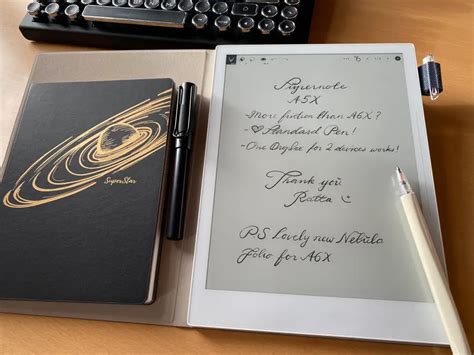 SuperStar
Supernote
A5X
- More friction than A6X?
- ♥ Standard Pen!
- One DropSee for 2 devices works!
Thank you
Ratta ☺
PS Lovely new Nebula
Folio for A6X